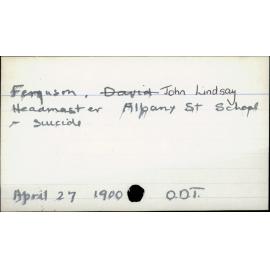 Ferguson, David John Lindsay
Headmaster Albany St School
- suicide
April 27 1900 O.D.T.